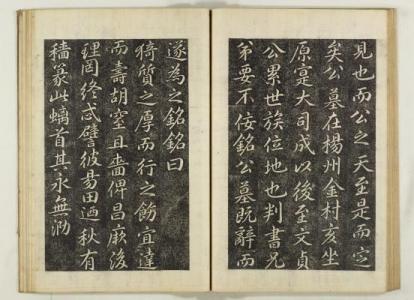 見也而公之天至是而定
矣公墓在楊州金村亥坐
原寔大司成以後至文貞
公累世族位地也判書兄
弟要不佞銘公墓旣辭而
遂為之銘銘曰
猗質之厚而行之飭宜達
而壽胡窒且嗇俾昌厥後
理罔終忒譬彼昜田逎秋有
穡篆此螭首其永無泐